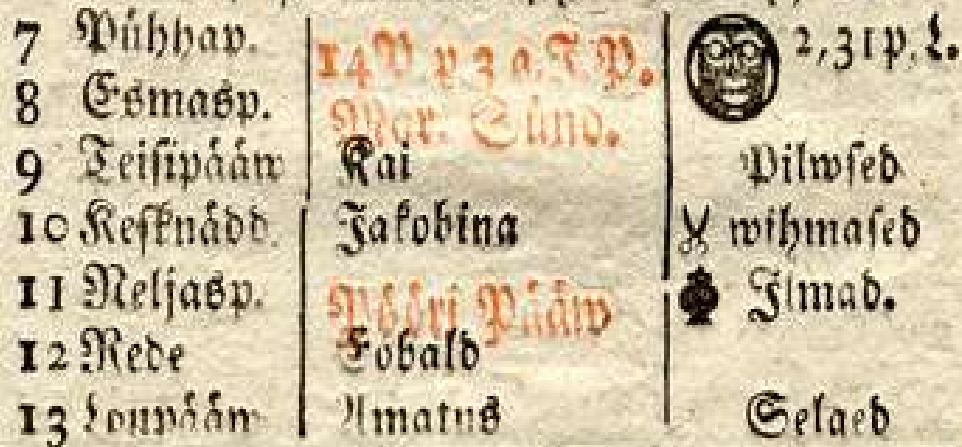 7 Pühhap. 14 P p 3 a. J. P. 2,31 p. L.
8 Esmasp. Mar. Sünd.
9 Teisipääw Kai Pilwsed
10 Kesknädd. Jakobina wihmased
11 Neljasp. Pööri Pääw Ilmad.
12 Rede Tobald
13 Loupääw Amatus Selged